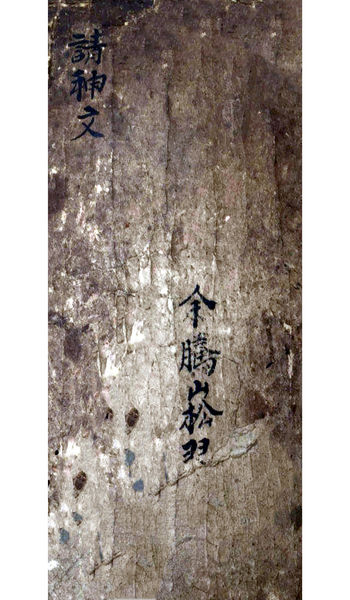 余騰崧
請神文